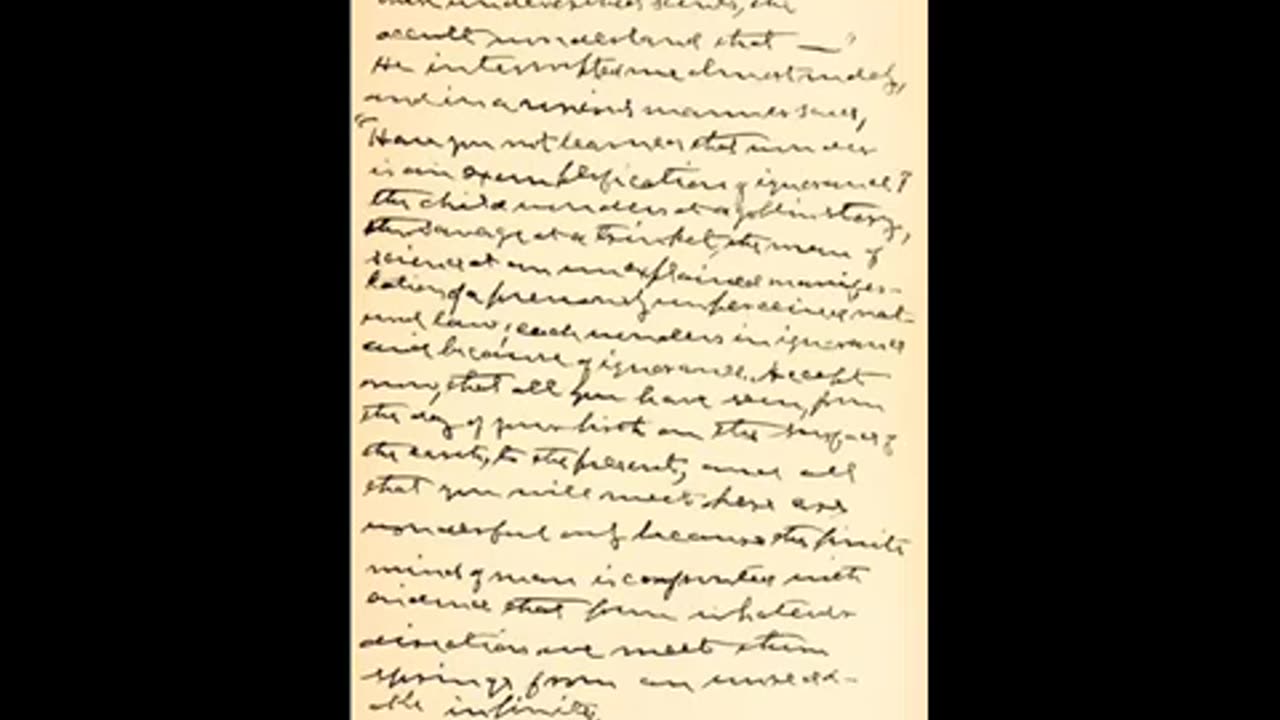 occult wonderland that — "
He interrupted me almost rudely,
and in a serious manner said,
"Have you not learned that wonder
is an exemplification of ignorance?
The child wonders at a goblin story,
the savage at a trinket, the man of
science at an unexplained manifes-
tation of a previously unperceived nat-
ural law; each wonders in ignorance
and because of ignorance. Accept
now, that all you have seen, from
the day of your birth on the surface of
the earth, to the present, and all
that you will meet here are
wonderful only because the finite
mind of man is confronted with
evidence that from whatever
direction we meet them
springs from an unread-
able infinity.